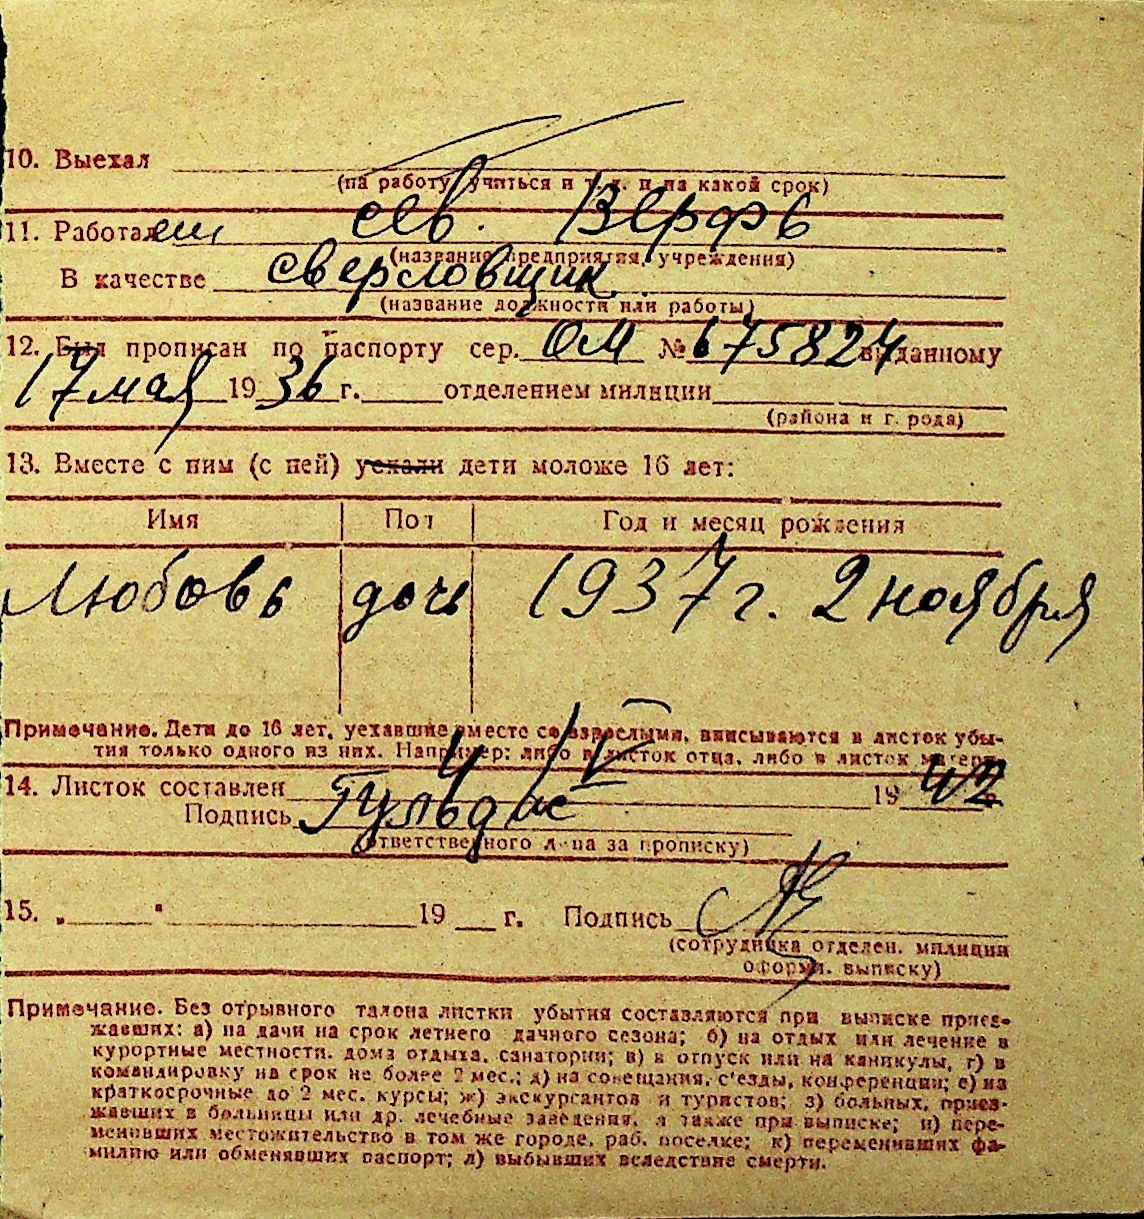 10. Выехал
(на работу, учиться и т. д. и на какой срок)
11. Работал Сев. Верфь
(название предприятия, учреждения)
В качестве сверловщик
(название должности или работы)
12. Был прописан по паспорту сер. ОМ № 675824 выданному
17 мая 1936 г. отделением милиции
(района и г. рода)
13. Вместе с ним (с ней) уехали дети моложе 16 лет:
Имя Пол Год и месяц рождения
Любовь дочь 1937 г. 2 ноября
Примечание. Дети до 16 лет, уехавшие вместе со взрослыми, вписываются в листок убы-
тия только одного из них. Например: либо в листок отца, либо в листок матери
14. Листок составлен 4/V 1942
Подпись
(ответственного лица за прописку)
15. „ " 19 г. Подпись
(сотрудника отделен. милиции
оформ. выписку)
Примечание. Без отрывного талона листки убытия составляются при выписке приез-
жавших: а) на дачи на срок летнего дачного сезона; б) на отдых или лечение в
курортные местности, дома отдыха, санатории; в) в отпуск или на каникулы, г) в
командировку на срок не более 2 мес.; д) на совещания, с'езды, конференции; е) на
краткосрочные до 2 мес. курсы; ж) экскурсантов и туристов; з) больных, приез-
жавших в больницы или др. лечебные заведения, а также при выписке; и) пере-
менивших местожительство в том же городе, раб. поселке; к) переменивших фа-
милию или обменявших паспорт; л) выбывших вследствие смерти.